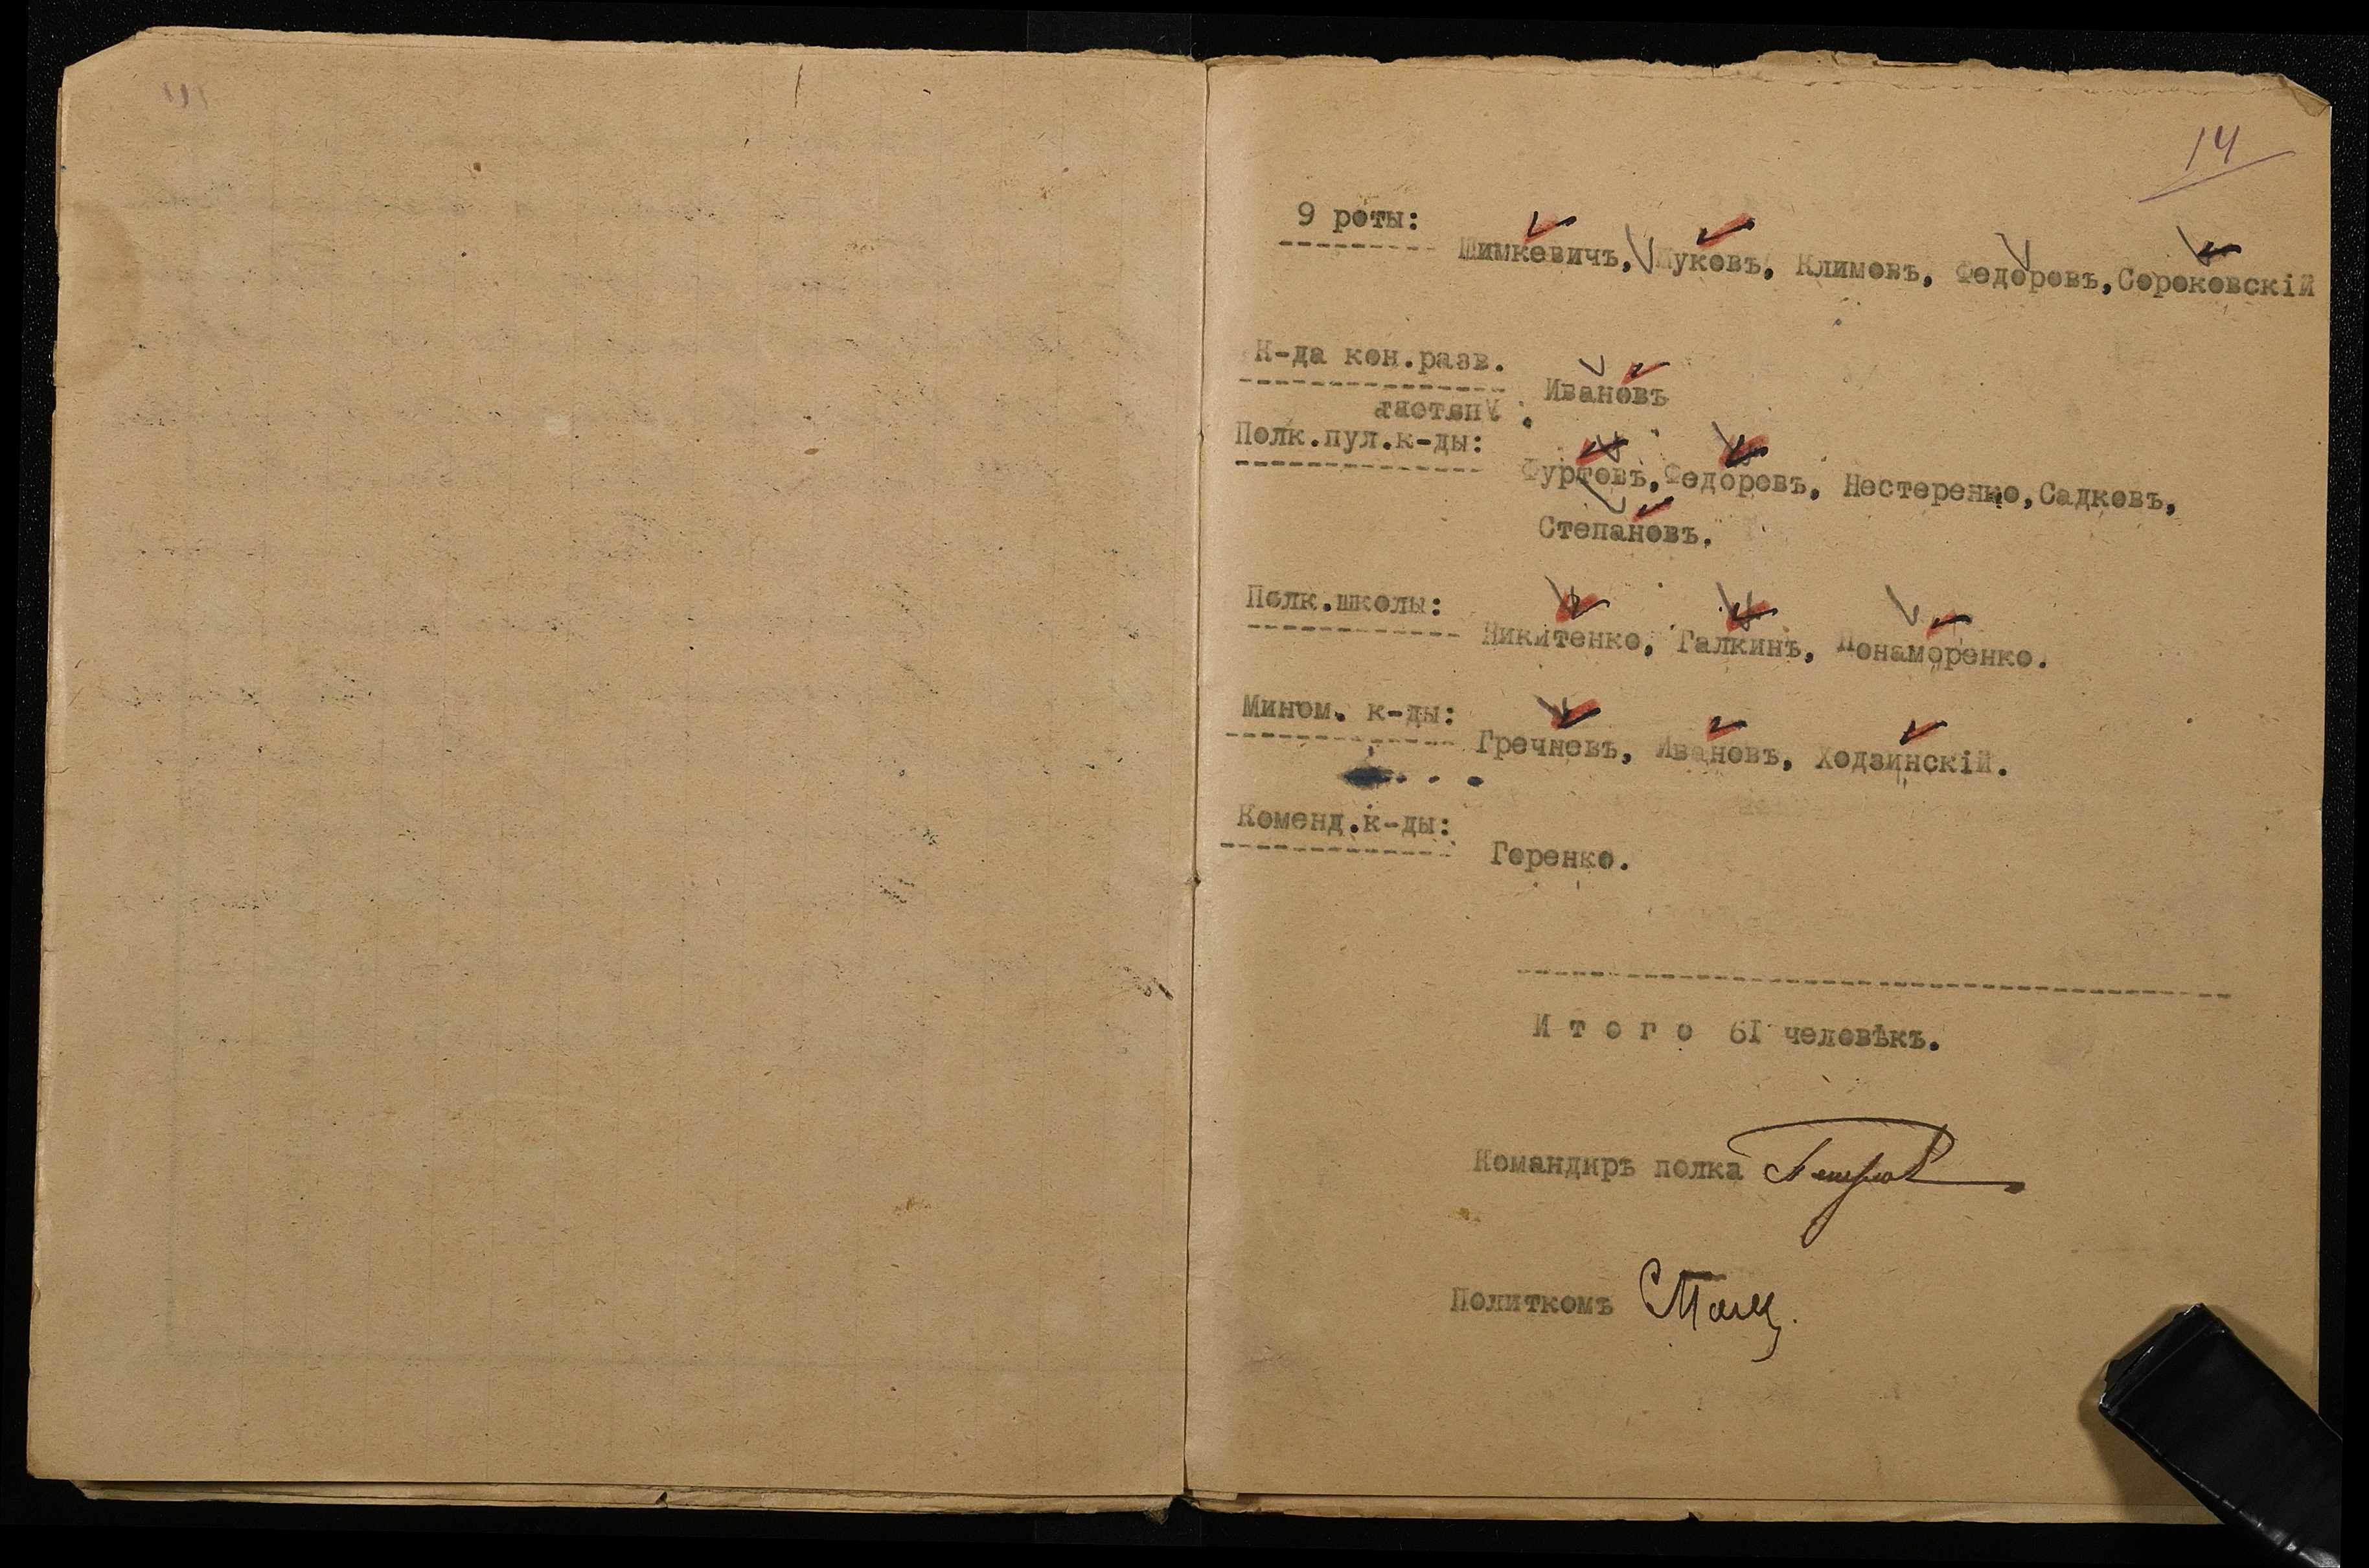 14
9 роты:
Шимкевичъ, Жуковъ, Климовъ, Федоровъ, Сороковскій
К-да кон.разв.
Ивановъ
Полк.пул.к-ды:
Фуртовъ, Федоровъ, Нестеренко, Садковъ,
Степановъ.
Полк.школы:
Никитенко, Галкинъ, Понаморенко.
Мином. к-ды:
Гречневъ, Ивановъ, Ходзинскій.
Коменд.к-ды:
Горенко.
Итого 61 человѣкъ.
Командиръ полка
Политкомъ